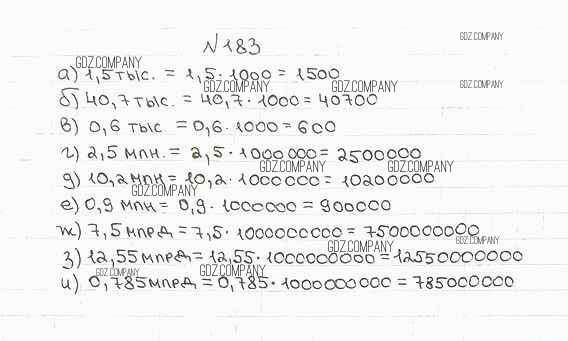 GDZ.COMPANY
№183
GDZ.COMPANY
а) 1,5 тыс. = 1,5 · 1000 = 1500
GDZ.COMPANY GDZ.COMPANY GDZ.COMPANY
б) 40,7 тыс. = 40,7 · 1000 = 40700
в) 0,6 тыс. = 0,6 · 1000 = 600
г) 2,5 млн. = 2,5 · 1000000 = 2500000
GDZ.COMPANY GDZ.COMPANY
д) 10,2 млн = 10,2 · 1000000 = 10200000
GDZ.COMPANY
е) 0,9 млн = 0,9 · 1000000 = 900000
ж) 7,5 млрд = 7,5 · 1000000000 = 7500000000
GDZ.COMPANY GDZ.COMPANY
з) 12,55 млрд = 12,55 · 1000000000 = 12550000000
GDZ.COMPANY GDZ.COMPANY
и) 0,785 млрд = 0,785 · 1000000000 = 785000000